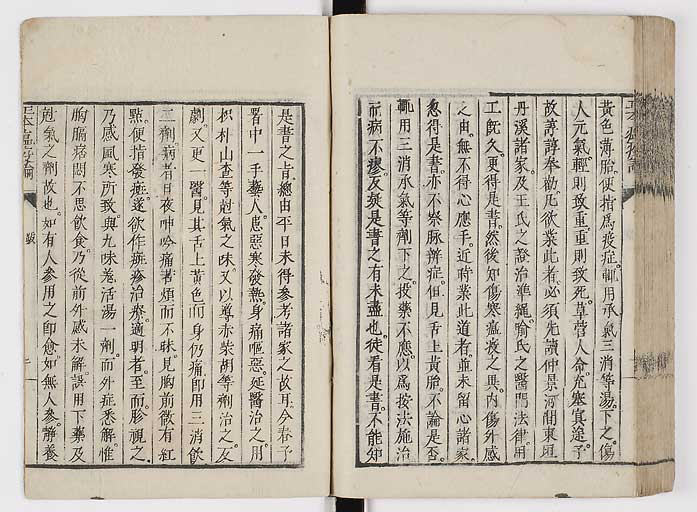 黃色薄胎便指爲疫症輒用承氣三消等湯下之傷
人元氣輕則致重重則致死草菅人命冤塞寘途予
故諄諄奉勸凡欲業此者必須先讀仲景河間東垣
丹溪諸家及王氏之證治準繩喻氏之醫門法律用
工旣久更得是書然後知傷寒瘟疫之異內傷外感
之由無不得心應手近時業此道者並未留心諸家
忽得是書亦不察脉辨症但見舌上黃胎不論是否
輒用三消承氣等劑下之投藥不應以爲按法施治
而病不瘳反疑是書之有未盡也徒看是書不能知
是書之旨總由平日未得參考諸家之故耳今春予
署中一手藝人患惡寒發熱身痛嘔惡延醫治之用
枳朴山查等尅氣之味又以尊亦柴胡等劑治之反
劇又更一醫見其舌上黃色而身仍痛卽用三消飮
二劑病者日夜呻吟痛苦煩而不昧見胸前微有紅
點便指發癍遂欲作癍疹治療適明者至而診視之
乃感風寒所致與九味羗活湯一劑而外症悉解惟
胸膈痞悶不思飮食乃從前外感未解誤用下藥及
尅氣之劑故也如有人參用之卽愈如無人參靜養
跋